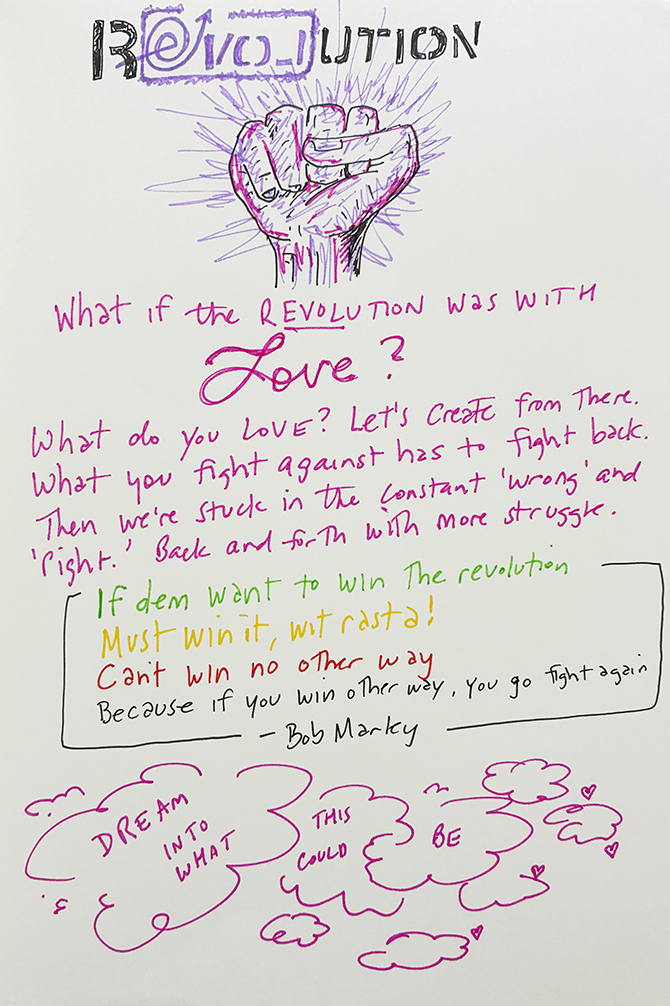 REVOLUTION
What if the REVOLUTION was with
Love?
What do you LOVE? Let's create from There.
What you fight against has to fight back.
Then we're stuck in the constant 'wrong' and
'right.' Back and forth with more struggle.
If dem want to win The revolution
Must win it, wit rasta!
Can't win no other way
Because if you win other way, you go fight again
- Bob Marley
DREAM
INTO
WHAT
THIS
COULD
BE